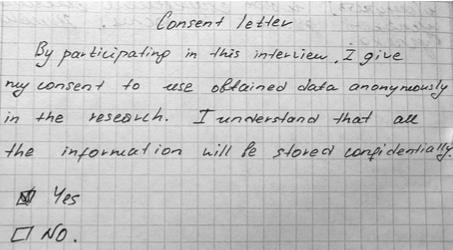 Consent letter
By participating in this interview, I give
my consent to use obtained data anonymously
in the research. I understand that all
the information will be stored confidentially.
☒ Yes
☐ NO.